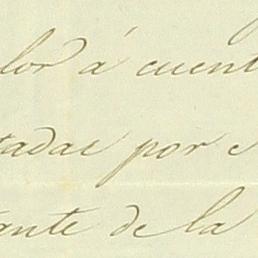 lor á cuent
tadas por e
ante de la